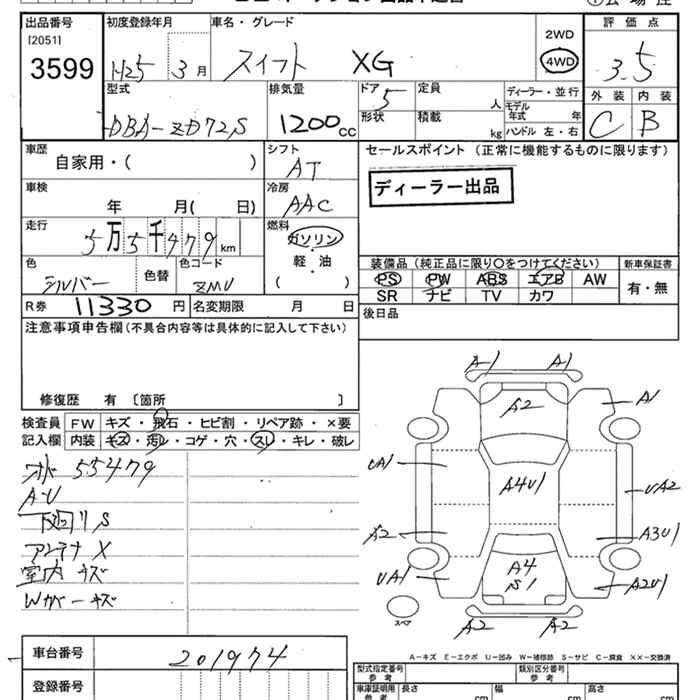 出品番号
[2051]
3599
初度登録年月
H25 3月
車名・グレード
スイフト XG
2WD
4WD
評価点
3.5
外装 内装
C B
型式
DBA-ZD72S
排気量
1200cc
ドア
5
定員
人
形状
積載
kg
ディーラー・並行
モデル年式 年
ハンドル 左・右
車歴
自家用・( )
シフト
AT
セールスポイント (正常に機能するものに限ります)
ディーラー出品
車検
年 月( 日)
冷房
AAC
走行
5万5千479km
燃料
ガソリン
・
軽・油
( )
色
シルバー
色替
色コード
ZMU
装備品 (純正品に限り〇をつけてください)
PS PW ABS エアB AW
SR ナビ TV カワ
新車保証書
有・無
R券 11330円
名変期限 月 日
後日品
注意事項申告欄(不具合内容等は具体的に記入して下さい)
修復歴 有 〔箇所 〕
検査員記入欄
FW キズ・飛石・ヒビ割・リペア跡・×要
内装 キズ・汚レ・コゲ・穴・スレ・キレ・破レ
55479
A-U
下廻りS
アンテナX
室内キズ
Wカバーキズ
A-1 A1
A2
A1
UA1
A4U1
UA2
A2
A3U1
UA1
A4
S1
A2U1
A2 A2
スペア
A-キズ E-エクボ U-凹み W-補修跡 S-サビ C-腐食 ××-交換済
車台番号
201974
登録番号
型式指定番号
参考
類別区分番号
参考
車庫証明用
参考
長さ cm
幅 cm
高さ cm